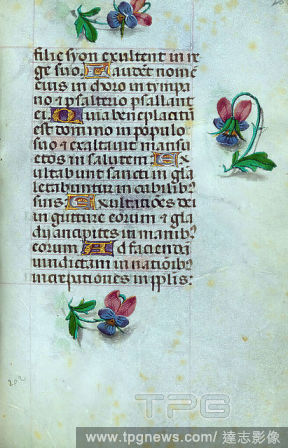 filie syon exultent in re
ge suo. Laudent nomē
eius in choro in tympa
no ⁊ psalterio psallant
ei. Quia beneplacitū
est domino in populo
suo ⁊ exaltauit mansu
etos in salutem Ex
ultabunt sancti in glā
letabuntur in cubilibꝰ
suis Exultatiōes dei
in gutture eorum ⁊ gla
dij ancipites in manibꝰ
eorum Ad faciendā
uindictam in nationibꝰ
increpationes in pplis:
202
TPG
www.tpgnews.com / 達志影像